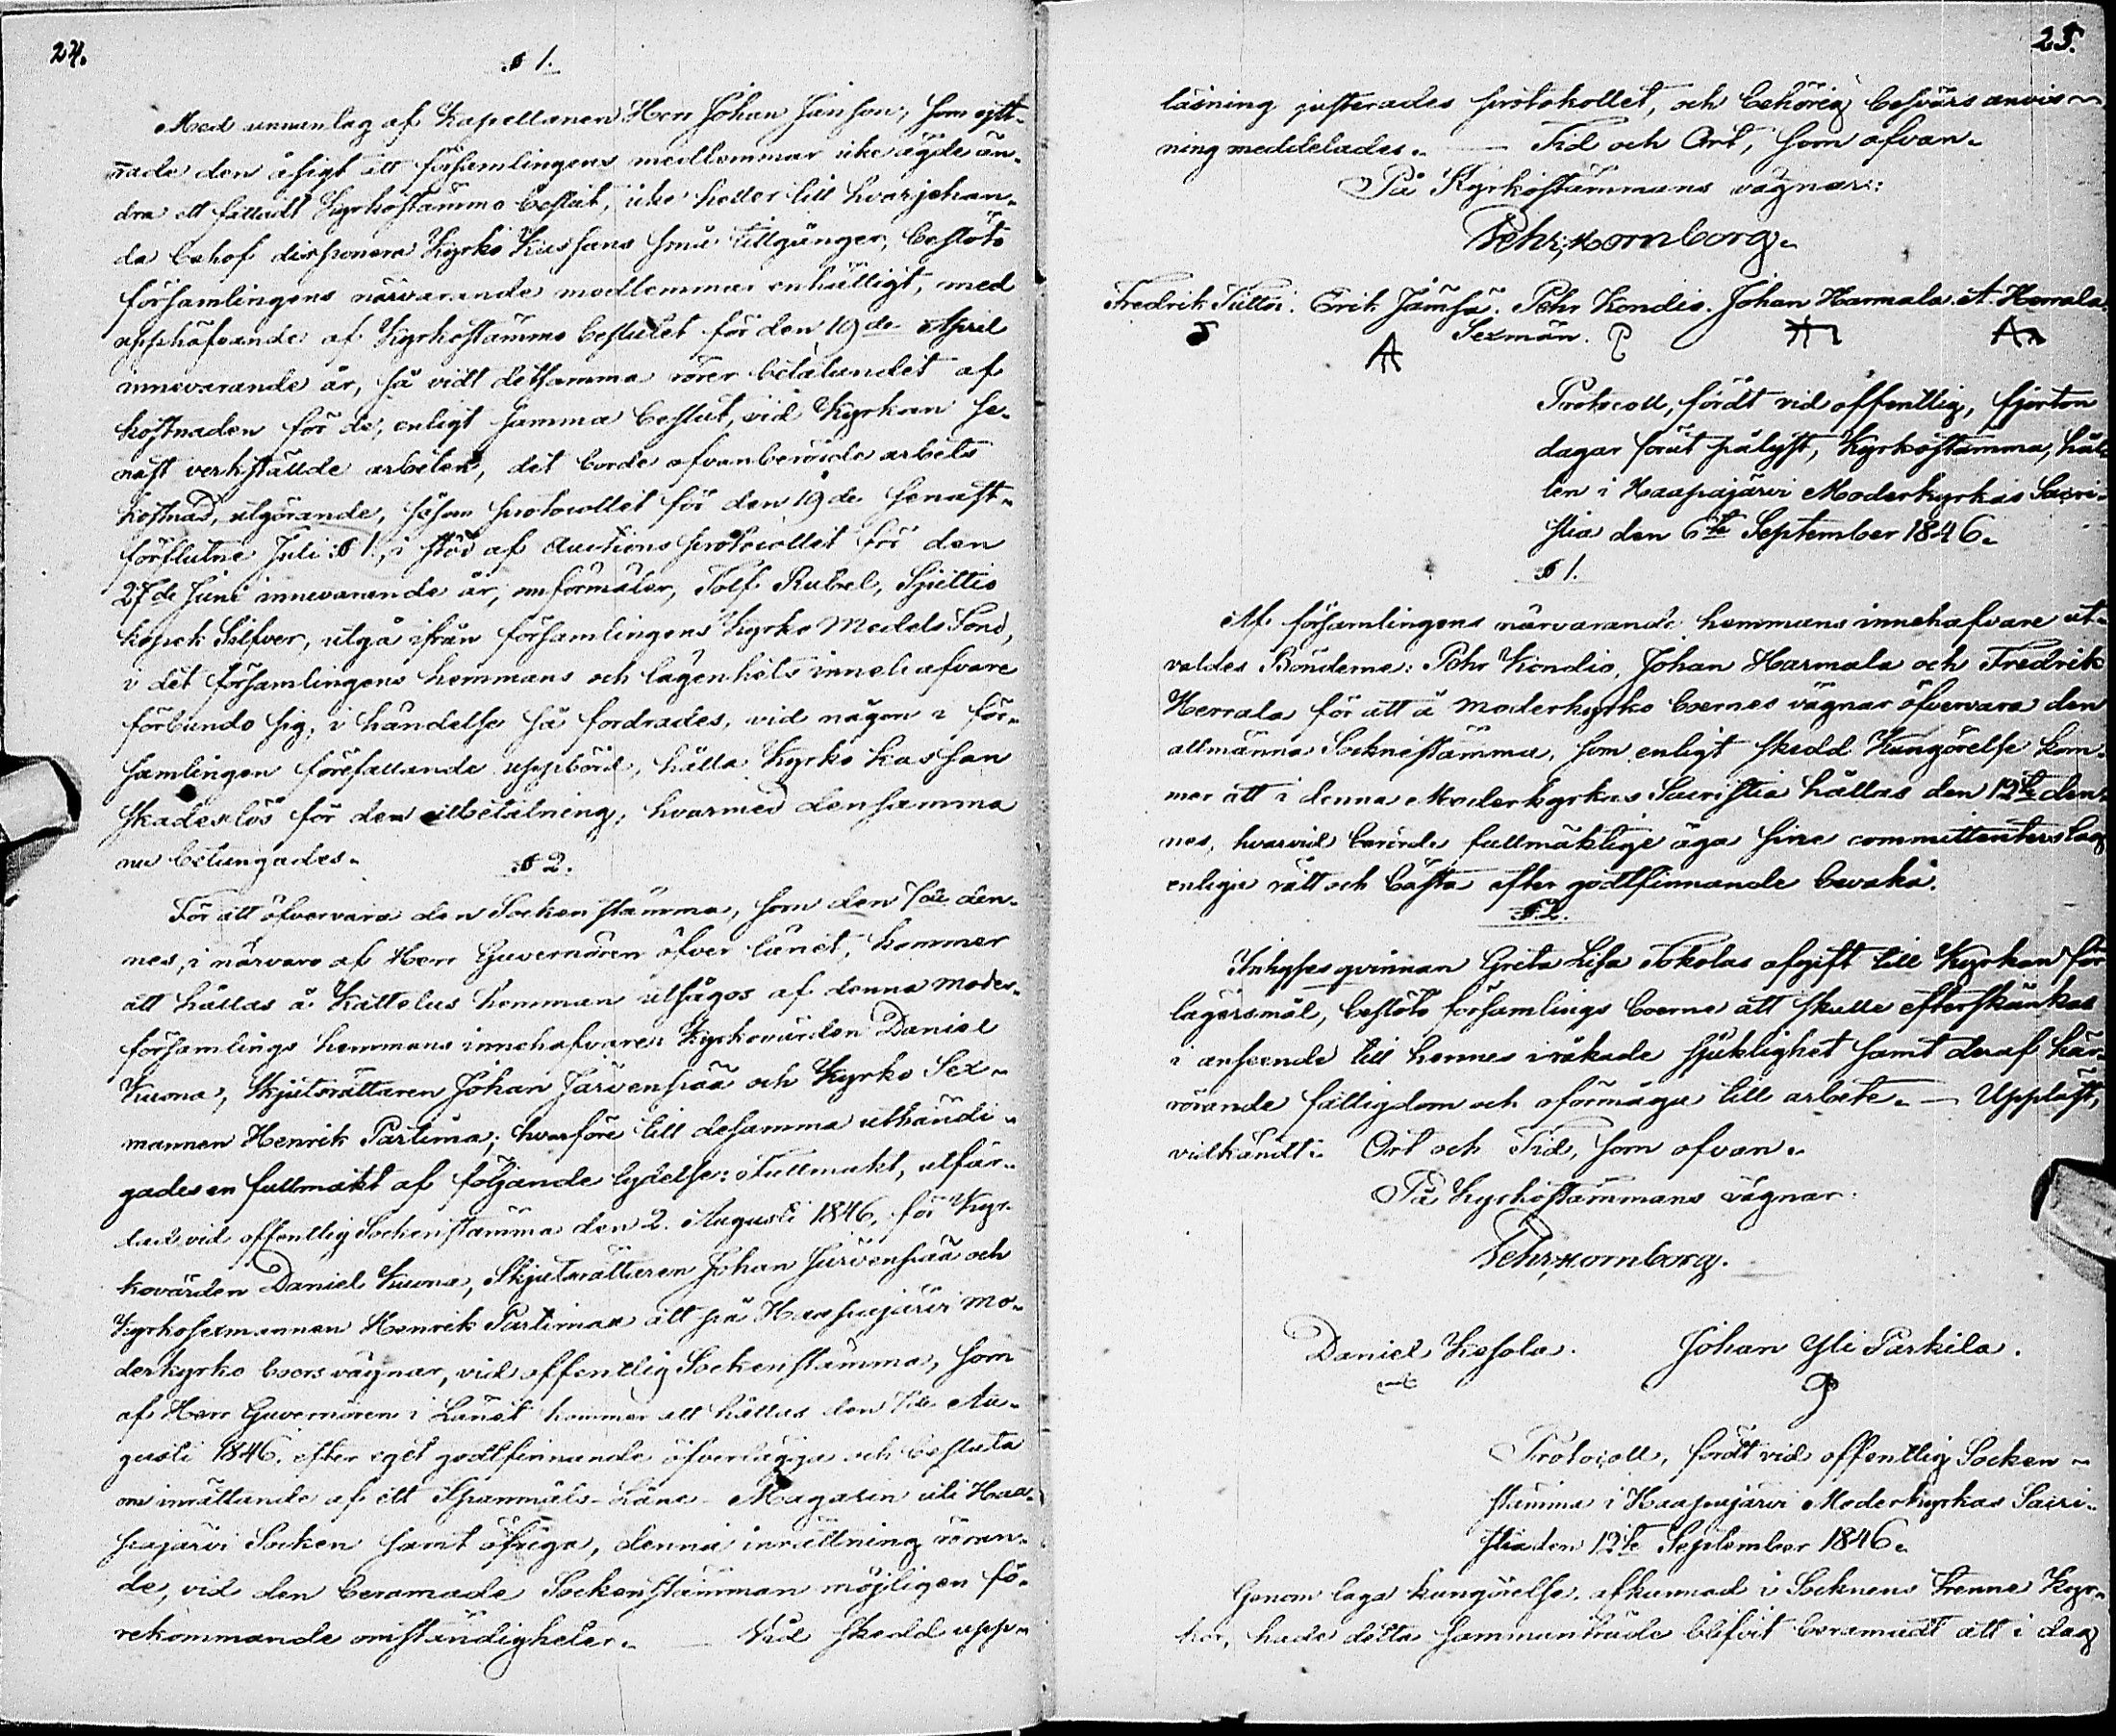 24.
§ 1.
Med unnanlag af Kapellanen Herr Johan Janson, som ytt-
rade den åsigt att församlingens medlemmar icke ägde än-
dra ett fattadt Kyrkostämmo beslut, icke heller till hvarjehan-
da behof disponera Kyrko Kassans små tillgångar, beslöto
församlingens närvarande medlemmar enhälligt, med
upphäfvande af Kyrkostämmo beslutet för den 19de April
innevarande år, så vidt detsamma rörer betalandet af
kostnaden för de, enligt samma beslut, vid Kyrkan se-
nast verkställde arbeten, det borde ofvanberörde arbets
kostnad, utgörande, såsom protocollet för den 19de senast-
förflutne Juli § 1, i stöd af Auctions protocollet för den
27de Juni innevarande år, omförmäler, Tolf Rubel, Sjuttio
kopek Silfver, utgå ifrån församlingens Kyrko Medels Fond,
i det församlingens hemmans och lägenhets innehafvare
förbundo sig, i händelse så fordrades, vid någon i för-
samlingen förefallande uppbörd, hålla Kyrko Kassan
skadeslös för den utbetalning, hvarmed densamma
nu betungades.
§ 2.
För att öfvervara den Sockenstämma, som den 7de den-
nes, i närvaro af Herr Guvernören öfver länet, kommer
att hållas å Kattelus hemman utsågos af denna moder-
församlings hemmans innehafvare Kyrkovärden Daniel
Kuona, Skjutsrättaren Johan Järvenpää och Kyrko Sex-
mannen Henrik Partima; hvarföre till desamma uthändi-
gades en fullmakt af följande lydelse: Fullmakt, utfär-
dad vid offentlig Sockenstämma den 2. Augusti 1846, för Kyr-
kovärden Daniel Kuona, Skjutsrättaren Johan Järvenpää och
Kyrkosexmannen Henrik Partimaa att på Haapajärvi mo-
derkyrko boers vägnar, vid offentlig Sockenstämma, som
af Herr Guvernören i Länet kommer att hållas den 7de Au-
gusti 1846, efter eget godtfinnande öfverlägga och besluta
om inrättande af ett Spannmåls-Låne-Magasin uti Haa-
pajärvi Socken samt öfriga, denna inrättning röran-
de, vid den beramade Sockenstämman möjligen fö-
rekommande omständigheter. — Vid skedd upp-
25.
läsning justerades protokollet, och behörig besvärs anvis-
ning meddelades. — Tid och Ort, som ofvan.
På Kyrkostämmans vägnar:
Pehr Hornborg.
Fredrik Tuttor. Erik Jämsä. Pehr Kondio. Johan Harmala. A. Herrala.
Sexmän.
Protocoll, fördt vid offentlig, fjorton
dagar förut pålyst, Kyrkostämma, hål-
len i Haapajärvi Moderkyrkas Sacri-
stia den 6te September 1846.
§ 1.
Af församlingens närvarande hemmans innehafvare ut-
valdes Bönderne: Pehr Kondio, Johan Harmala och Fredrik
Herrala för att å moderkyrko boernes vägnar öfvervara den
allmänna Socknestämma, som enligt skedd Kungörelse kom-
mer att i denna Moderkyrkas Sacristia hållas den 12te den-
nes, hvarvid berörde fullmäktige äga sine committenters lag-
enliga rätt och bästa efter godtfinnande bevaka.
§ 2.
Inhyses qvinnan Greta Lisa Tokolas afgift till Kyrkan för
lägersmål, beslöto församlings boerne att skulle efterskänkas
i anseende till hennes iråkade sjuklighet samt deraf här-
rörande fattigdom och oförmåga till arbete. — Uppläst,
vidkändt. Ort och Tid, som ofvan.
På Kyrkostämmans vägnar:
Pehr Hornborg.
Daniel Kesola. Johan Yli Parkila.
Protocoll, fördt vid offentlig Socken-
stämma i Haapajärvi Moderkyrkas Sacri-
stia den 12te September 1846.
Genom laga kungörelse, afkunnad i Socknens trenne Kyr-
kor, hade detta sammanträde blifvit beramadt att i dag